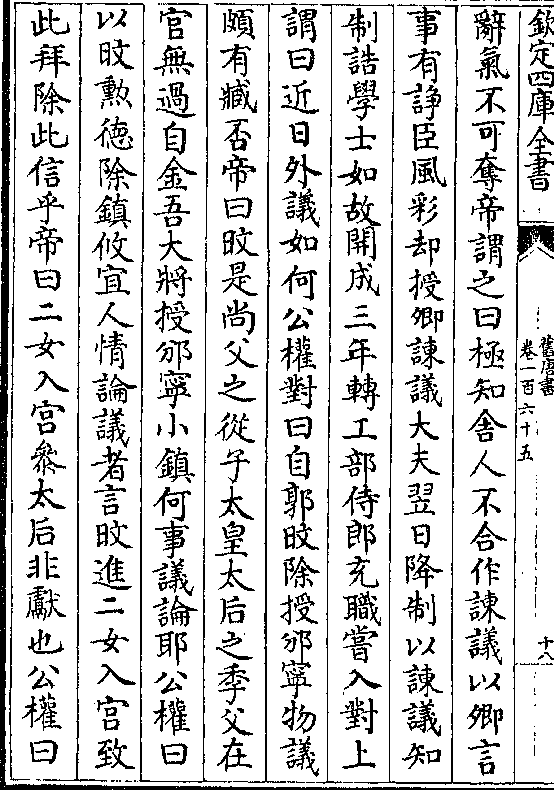 欽定四庫全書
舊唐書
卷一百六十五
十八
辭氣不可奪帝謂之曰極知舍人不合作諫議以卿言
事有諍臣風彩却授卿諫議大夫翌日降制以諫議知
制誥學士如故開成三年轉工部侍郎充職嘗入對上
謂曰近日外議如何公權對曰自郭旼除授邠寧物議
頗有臧否帝曰旼是尚父之從子太皇太后之季父在
官無過自金吾大將授邠寧小鎮何事議論耶公權曰
以旼勲德除鎮攸宜人情論議者言旼進二女入宫致
此拜除此信乎帝曰二女入宫叅太后非獻也公權曰